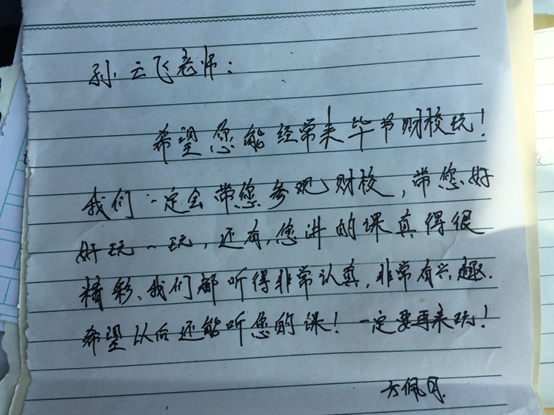 孙云飞老师：
希望您能经常来毕节财校玩！
我们一定会带您参观财校，带您好
好玩一玩，还有，您讲的课真得很
精彩，我们都听得非常认真，非常有兴趣．
希望以后还能听您的课！一定要再来玩！
方佩月